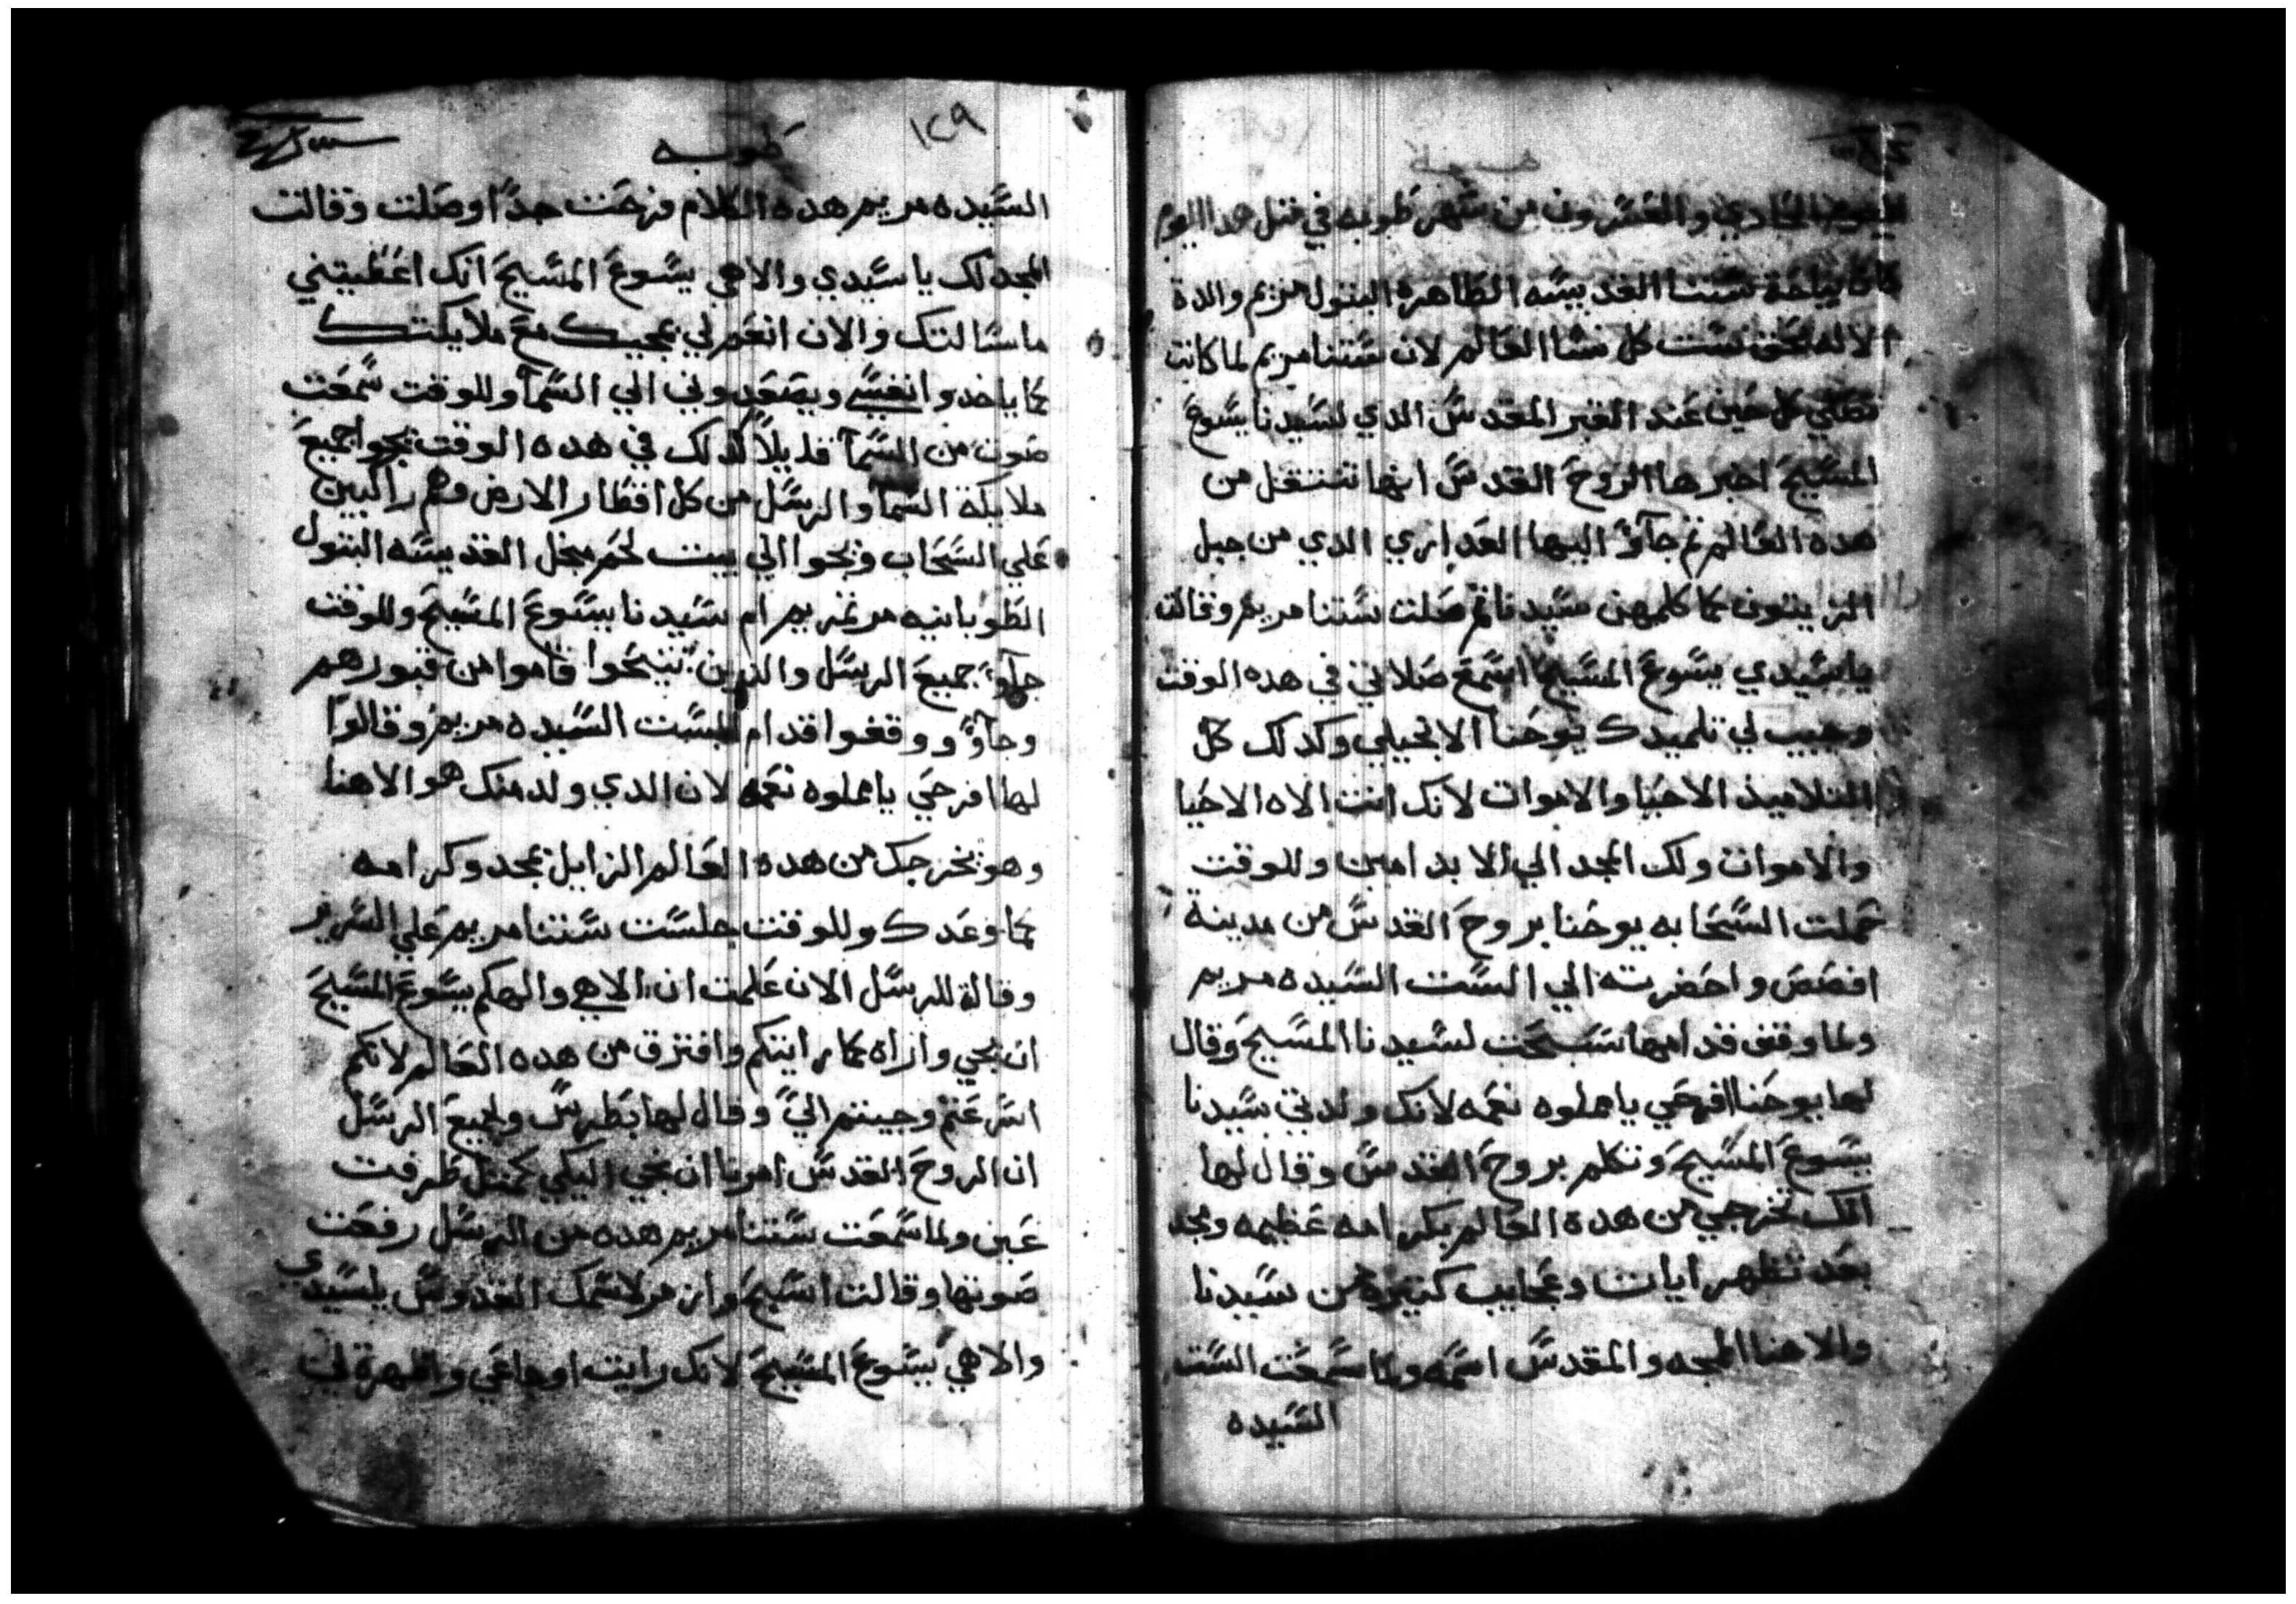 اليوم الحادي والعشرون من شهر طوبه في متل هدا اليوم
كانت نياحة ستنا القديسه الطاهره البتول مريم والدة
الاله بحق ست كل نسا العالم لان ستنا مريم لما كانت
تصلي كل حين عند القبر المقدس الدي لسيدنا يسوع
المسيح اخبرها الروح القدس انها تنتقل من
هده العالم تم جآوا اليها العداري الدي من جبل
الزيتون كما كلمهن سيدنا تم صلت ستنا مريم وقالت
ياسيدي يسوع المسيح اسمع صلاتي في هده الوقت
وجيب لي تلميدك يوحنا الانجيلي وكدلك كل
التلاميذ الاحيا والاموات لانك انت الاه الاحيا
والاموات ولك المجد الي الابد امين وللوقت
حملت السحابه يوحنا بروح القدس من مدينة
افصص واحضرته الي الست السيده مريم
ولما وقف قدامها سبحت لسيدنا المسيح وقال
لها يوحنا افرحي يامملوه نعمه لانك ولدتي سيدنا
يسوع المسيح وتكلم بروح القدس وقال لها
انك تخرجي من هده العالم بكرامه عظيمه ومجد
بعد تظهر ايات وعجايب كتيره من سيدنا
والاهنا المجد والمقدس اسمه ولما سمعت الست
السيده
١٢٩
طوبه
السيده مريم هده الكلام فرحت جدًا وصلت وقالت
المجد لك ياسيدي والاهي يسوع المسيح انك اعطيتني
ماسالتك والان انعم لي بمجيك مع ملايكتك
كما ياخدوا نفسي ويصعدوني الي السمآ وللوقت سمعت
صوت من السمآ قايلاً كدلك في هده الوقت يجوا جميع
ملايكة السما والرسل من كل اقطار الارض وهم راكبين
علي السحاب ويجوا الي بيت لحم مجل القديسه البتول
الطوبانيه مرتمريم ام سيدنا يسوع المسيح وللوقت
جآوا جميع الرسل والذين تنيحوا قاموا من قبورهم
وجآوا ووقفوا قدام الست السيده مريم وقالوا
لها افرحي يامملوه نعمه لان الدي ولد منك هو الاهنا
وهو يخرجك من هده العالم الزايل بمجد وكرامه
كما وعدك وللوقت جلست ستنا مريم علي السرير
وقالة للرسل الان علمت ان الاهي والهكم يسوع المسيح
ان يجي واراه كما رايتكم وافترق من هده العالم لانكم
اسرعتم وجيتم اليّ وقال لها بطرس وجميع الرسل
ان الروح القدس امرنا ان نجي اليكي كمتل طرفت
عين ولما سمعت ستنا مريم هده من الرسل رفعت
صوتها وقالت اسبح وازمر لاسمك القدوس ياسيدي
والاهي يسوع المسيح لانك رايت اوجاعي واظهرة لي